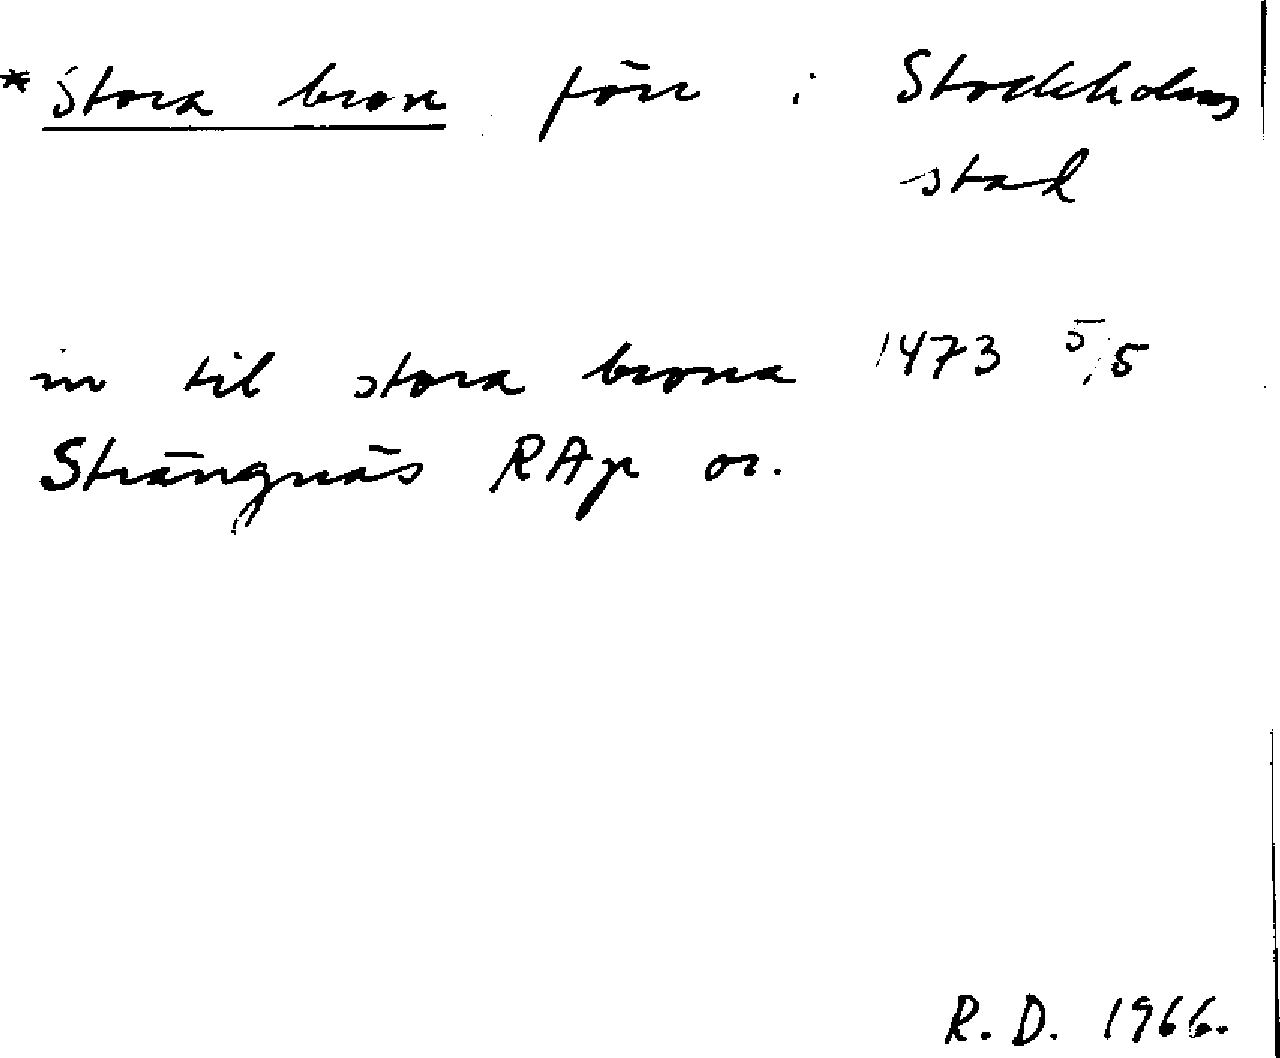 * Stora bron förr i Stockholms
stad
in til stora brona 1473 5/5
Strängnäs RAp or.
R. D. 1966.